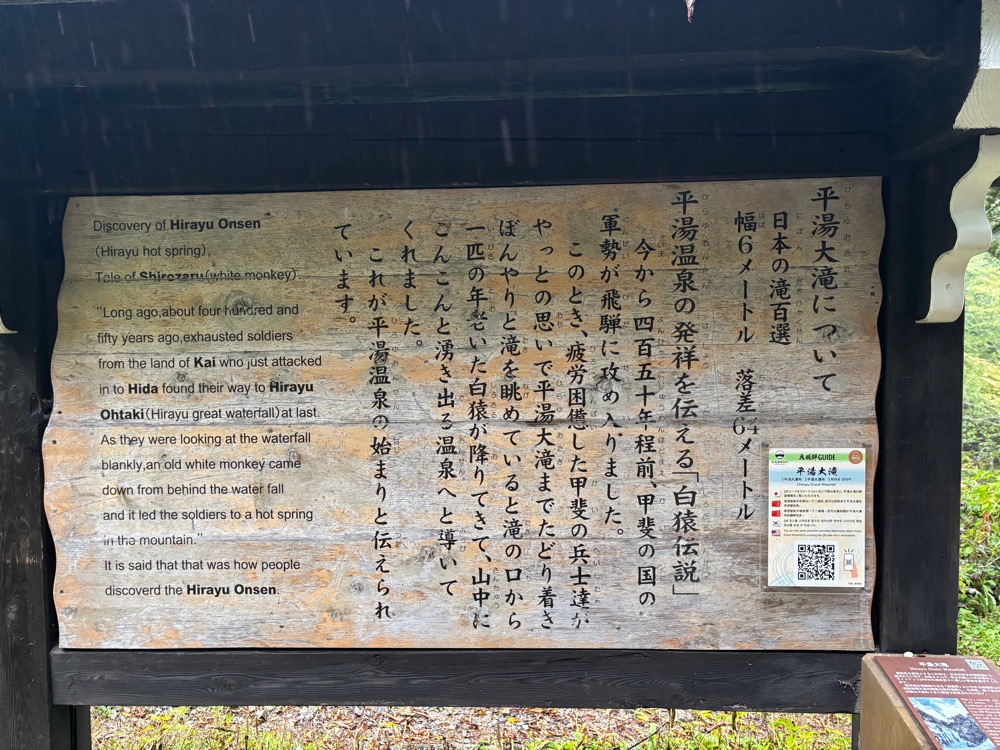 平湯大滝について
日本の滝百選
幅6メートル 落差64メートル
平湯温泉の発祥を伝える「白猿伝説」
今から四百五十年程前、甲斐の国の
軍勢が飛騨に攻め入りました。
このとき、疲労困憊した甲斐の兵士達が
やっとの思いで平湯大滝までたどり着き
ぼんやりと滝を眺めていると滝の口から
一匹の年老いた白猿が降りてきて、山中に
こんこんと湧き出る温泉へと導いて
くれました。
これが平湯温泉の始まりと伝えられ
ています。
Discovery of Hirayu Onsen
(Hirayu hot spring),
Tale of Shirozaru(white monkey)
"Long ago,about four hundred and
fifty years ago,exhausted soldiers
from the land of Kai who just attacked
in to Hida found their way to Hirayu
Ohtaki(Hirayu great waterfall)at last.
As they were looking at the waterfall
blankly,an old white monkey came
down from behind the water fall
and it led the soldiers to a hot spring
in the mountain."
It is said that that was how people
discoverd the Hirayu Onsen.
奥飛騨GUIDE
平湯大滝
平湯大滝
Hirayu Otaki Waterfall